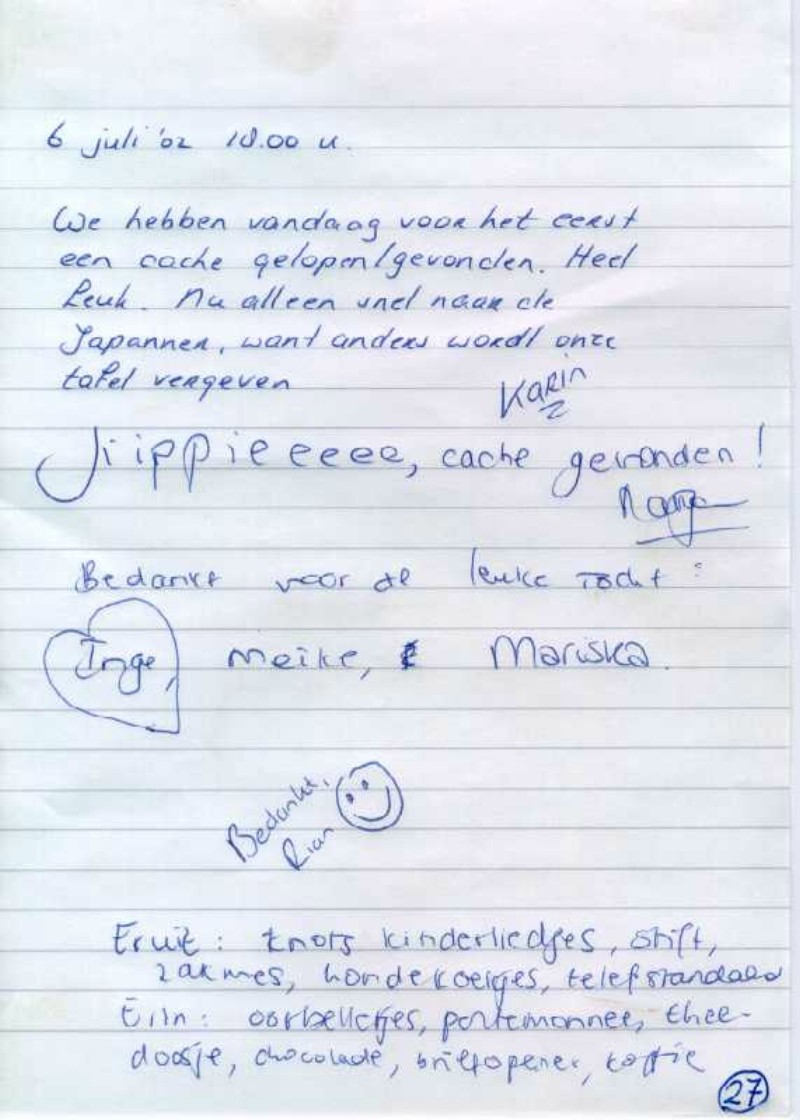 6 juli '02 18.00 u.
We hebben vandaag voor het eerst
een cache gelopen/gevonden. Heel
leuk. Nu alleen snel naar de
Japanner, want anders wordt onze
tafel vergeven
Karin
Jiippieeeee, cache gevonden!
Bedankt voor de leuke tocht:
Inge, Meike, & Mariska.
Bedankt,
Rian
Eruit: knots kinderliedjes, stift,
zakmes, hondekoekjes, telefstandaard
Erin: oorbelletjes, portemonnee, thee-
doosje, chocolade, briefopener, koffie
27